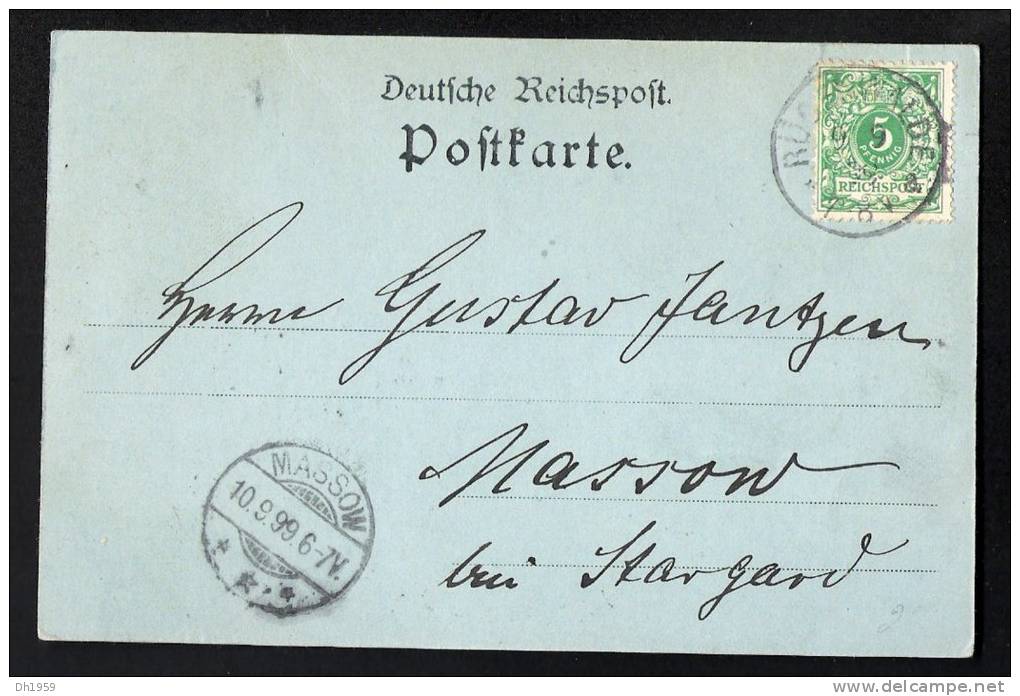 Deutsche Reichspost.
Postkarte.
5
PFENNIG
REICHSPOST
Herrn Gustav Jantzen
Massow
bei Stargard
MASSOW
10.9.99.6-7V.
DH1959
delcampe.net